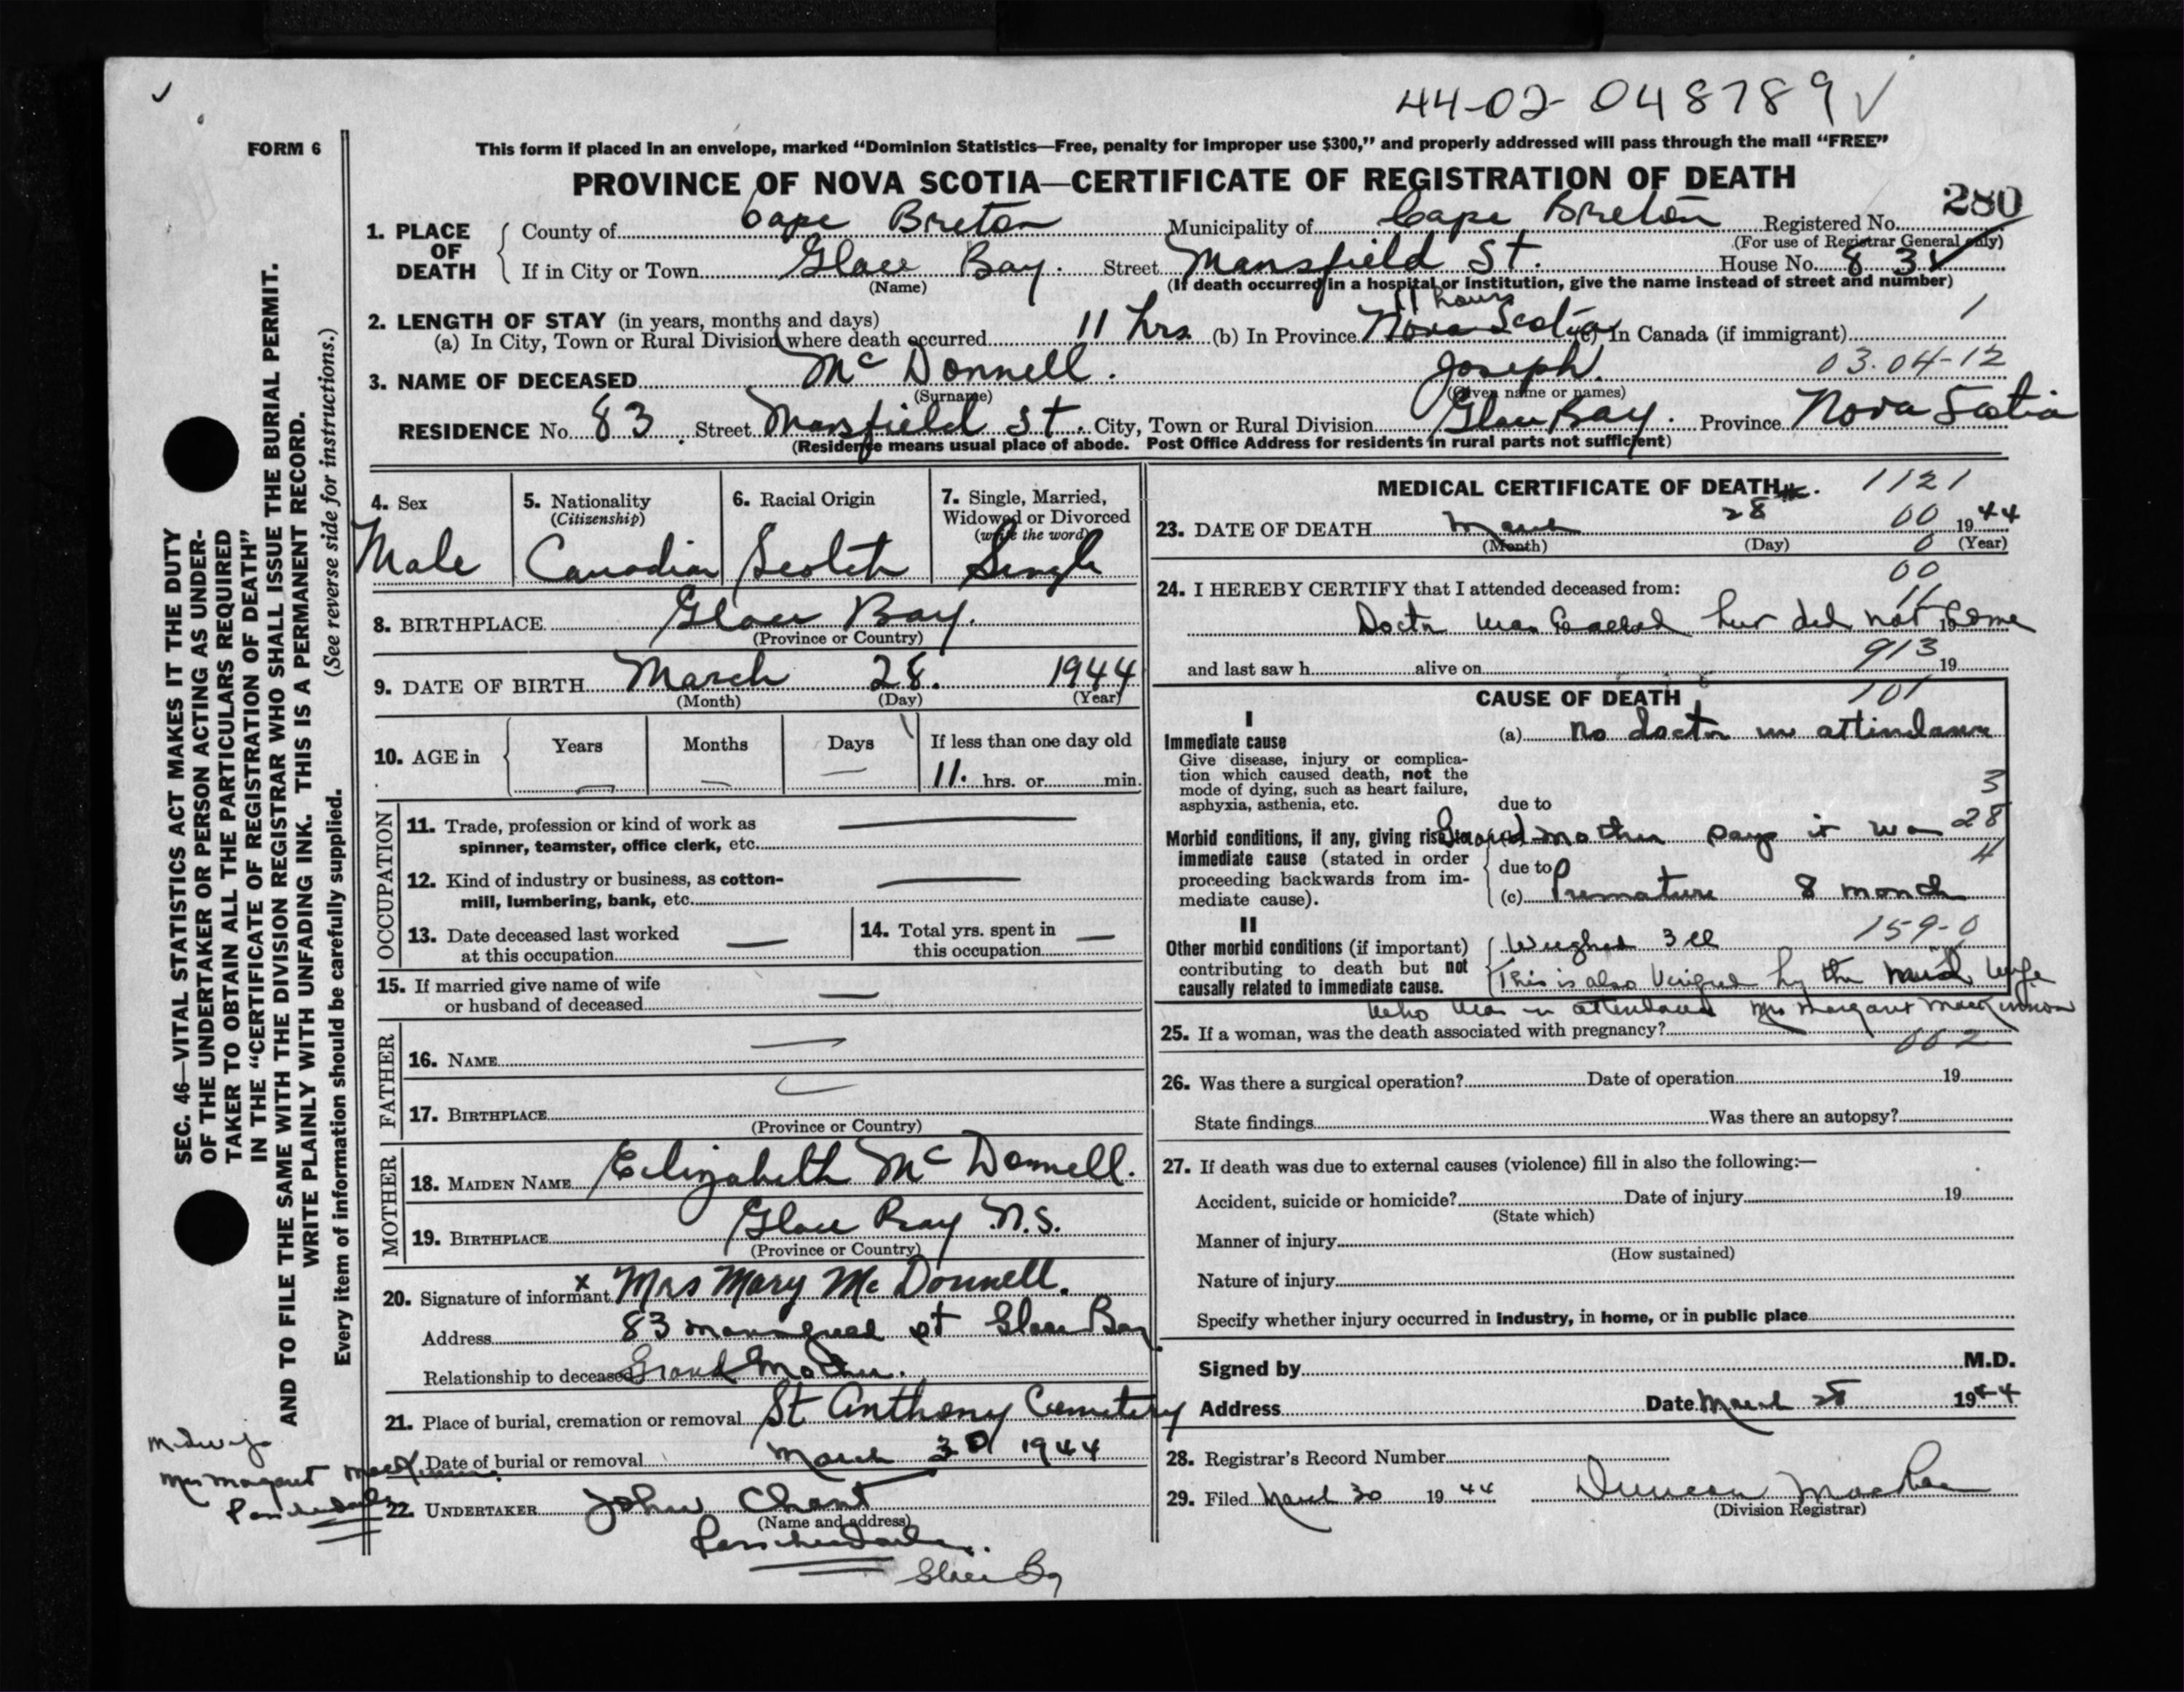 44-02-048789
FORM 6
This form if placed in an envelope, marked “Dominion Statistics—Free, penalty for improper use $300,” and properly addressed will pass through the mail “FREE”
PROVINCE OF NOVA SCOTIA—CERTIFICATE OF REGISTRATION OF DEATH
280
1. PLACE OF DEATH County of Cape Breton Municipality of Cape Breton Registered No.
(For use of Registrar General only)
If in City or Town Glace Bay. Street Mansfield St. House No. 83
(Name) (If death occurred in a hospital or institution, give the name instead of street and number)
2. LENGTH OF STAY (in years, months and days) 11 hours 1
(a) In City, Town or Rural Division where death occurred 11 hrs (b) In Province Nova Scotia (c) In Canada (if immigrant)
3. NAME OF DECEASED Mc Donnell. Joseph. 03.04-12
(Surname) (Given name or names)
RESIDENCE No. 83. Street Mansfield St. City, Town or Rural Division Glace Bay. Province Nova Scotia
(Residence means usual place of abode. Post Office Address for residents in rural parts not sufficient)
4. Sex 5. Nationality 6. Racial Origin 7. Single, Married,
(Citizenship) Widowed or Divorced
(write the word)
Male Canadian Scotch Single
8. BIRTHPLACE Glace Bay.
(Province or Country)
9. DATE OF BIRTH March 28. 1944
(Month) (Day) (Year)
10. AGE in Years Months Days If less than one day old
11. hrs. or min.
OCCUPATION
11. Trade, profession or kind of work as
spinner, teamster, office clerk, etc.
12. Kind of industry or business, as cotton-
mill, lumbering, bank, etc.
13. Date deceased last worked 14. Total yrs. spent in
at this occupation this occupation
15. If married give name of wife
or husband of deceased
FATHER
16. NAME
17. BIRTHPLACE
(Province or Country)
MOTHER
18. MAIDEN NAME Elizabeth Mc Donnell.
19. BIRTHPLACE Glace Bay N.S.
(Province or Country)
20. Signature of informant x Mrs Mary Mc Donnell.
Address 83 st Glace Bay
Relationship to deceased Grand Mother.
21. Place of burial, cremation or removal St Anthony Cemetery
Date of burial or removal March 30 1944
22. UNDERTAKER John Chant
(Name and address)
Glace Bay
MEDICAL CERTIFICATE OF DEATH. 1121
23. DATE OF DEATH March 28 00 1944
(Month) (Day) 0 (Year)
00
24. I HEREBY CERTIFY that I attended deceased from: 11
Doctor was called but did not come 19
913
and last saw h alive on 19
CAUSE OF DEATH 101
I
Immediate cause (a) No doctor in attendance
Give disease, injury or complica-
tion which caused death, not the
mode of dying, such as heart failure,
asphyxia, asthenia, etc. due to 3
Morbid conditions, if any, giving rise to Grand mother says it was 28
immediate cause (stated in order 4
proceeding backwards from im- due to
mediate cause). (c) Premature 8 month
II
Other morbid conditions (if important) Weighed 3 159-0
contributing to death but not This is also by the wife
causally related to immediate cause.
who was in attendance Mrs Margaret MacKinnon
25. If a woman, was the death associated with pregnancy?
002
26. Was there a surgical operation? Date of operation 19
State findings Was there an autopsy?
27. If death was due to external causes (violence) fill in also the following:—
Accident, suicide or homicide? Date of injury 19
(State which)
Manner of injury
(How sustained)
Nature of injury
Specify whether injury occurred in industry, in home, or in public place
Signed by M.D.
Address Date March 28 1944
28. Registrar's Record Number
29. Filed March 30 1944 Duncan
(Division Registrar)
SEC. 46—VITAL STATISTICS ACT MAKES IT THE DUTY
OF THE UNDERTAKER OR PERSON ACTING AS UNDER-
TAKER TO OBTAIN ALL THE PARTICULARS REQUIRED
IN THE “CERTIFICATE OF REGISTRATION OF DEATH”
AND TO FILE THE SAME WITH THE DIVISION REGISTRAR WHO SHALL ISSUE THE BURIAL PERMIT.
WRITE PLAINLY WITH UNFADING INK. THIS IS A PERMANENT RECORD.
Every item of information should be carefully supplied. (See reverse side for instructions.)
Midwife
Mrs Margaret MacKinnon